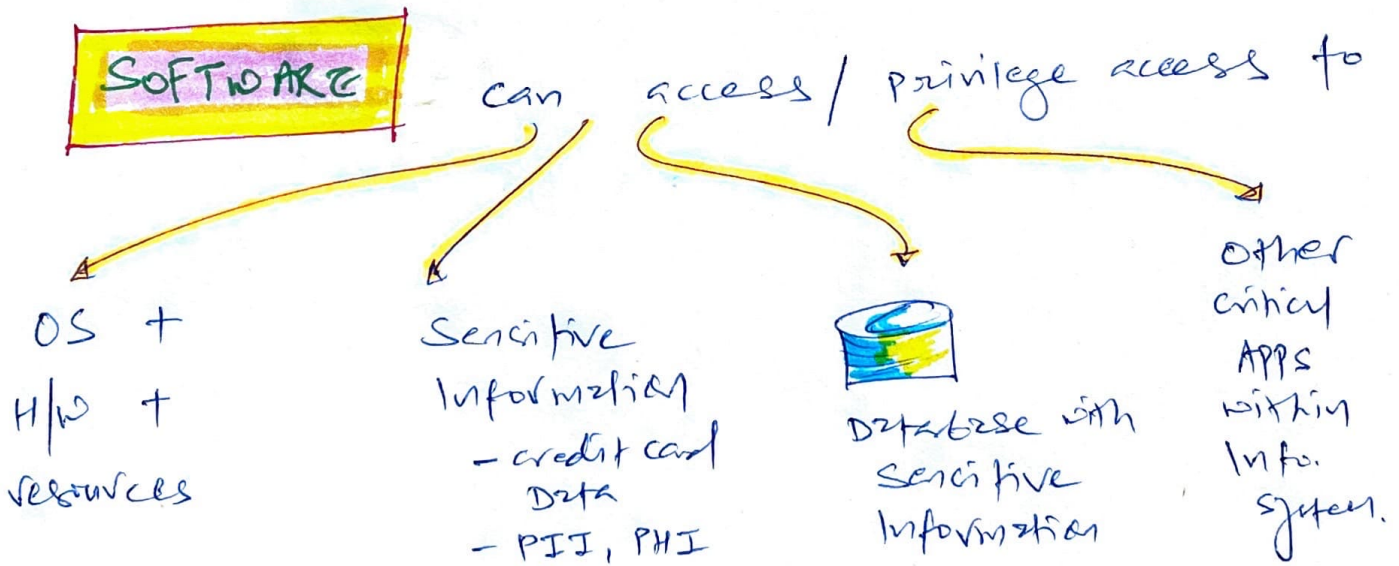 SOFTWARE can access / privilege access to
OS +
H/W +
resources
Sensitive
Information
- credit card
Data
- PII, PHI
Database with
Sensitive
Information
Other
critical
APPS
within
Info.
system.